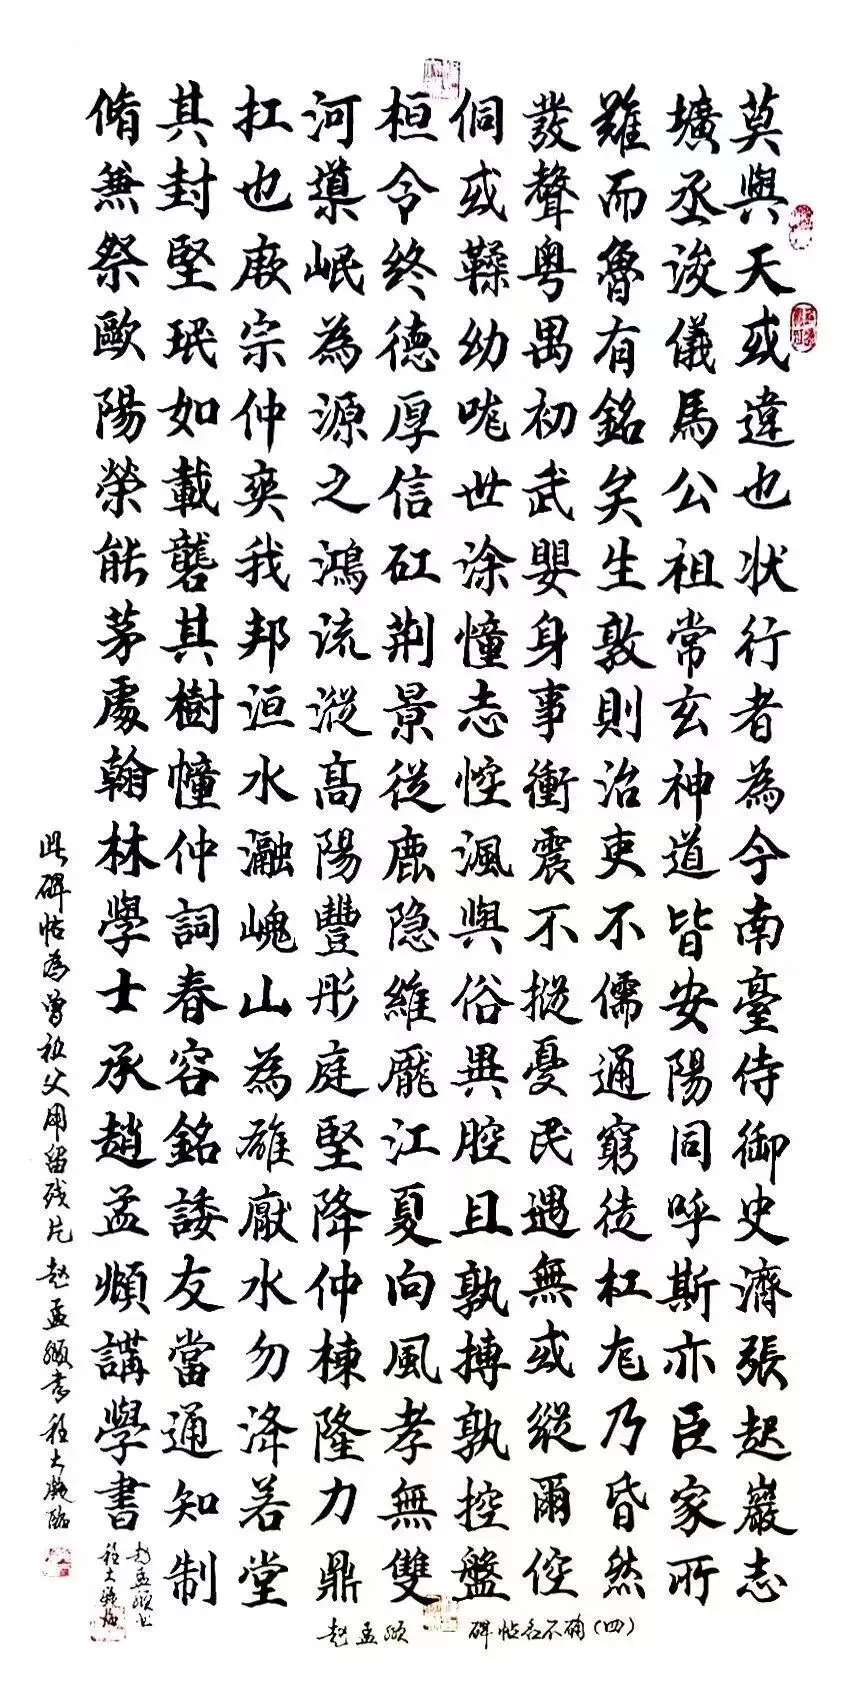 莫與天或違也状行者為今南臺侍御史濟張起巖志
壙丞浚儀馬公祖常玄神道皆安陽同呼斯亦臣家所
難而魯有銘矣生敦則治吏不儒通窮徒杠尨乃昏然
發聲粤禺初武嬰身事衝震不摐憂民遇無或縱爾倥
侗或鞣幼咙世涂憧志悾渢與俗異腔且孰搏孰控盤
桓令終德厚信矼荆景從鹿隐維龎江夏向風孝無雙
河導岷為源之鴻流漎高陽豐彤庭堅降仲棟隆力鼎
扛也厥宗仲奕我邦洹水瀜嵬山為雄厭水勿洚若堂
其封堅珉如載礱其樹幢仲詞春容銘諉友當通知制
脩兼祭歐陽榮能茅處翰林學士承趙孟頫講學書
此碑帖為曾祖父用留残片 赵孟頫书 程大 臨
赵孟頫书
程大
赵孟頫 碑帖名不确(四)